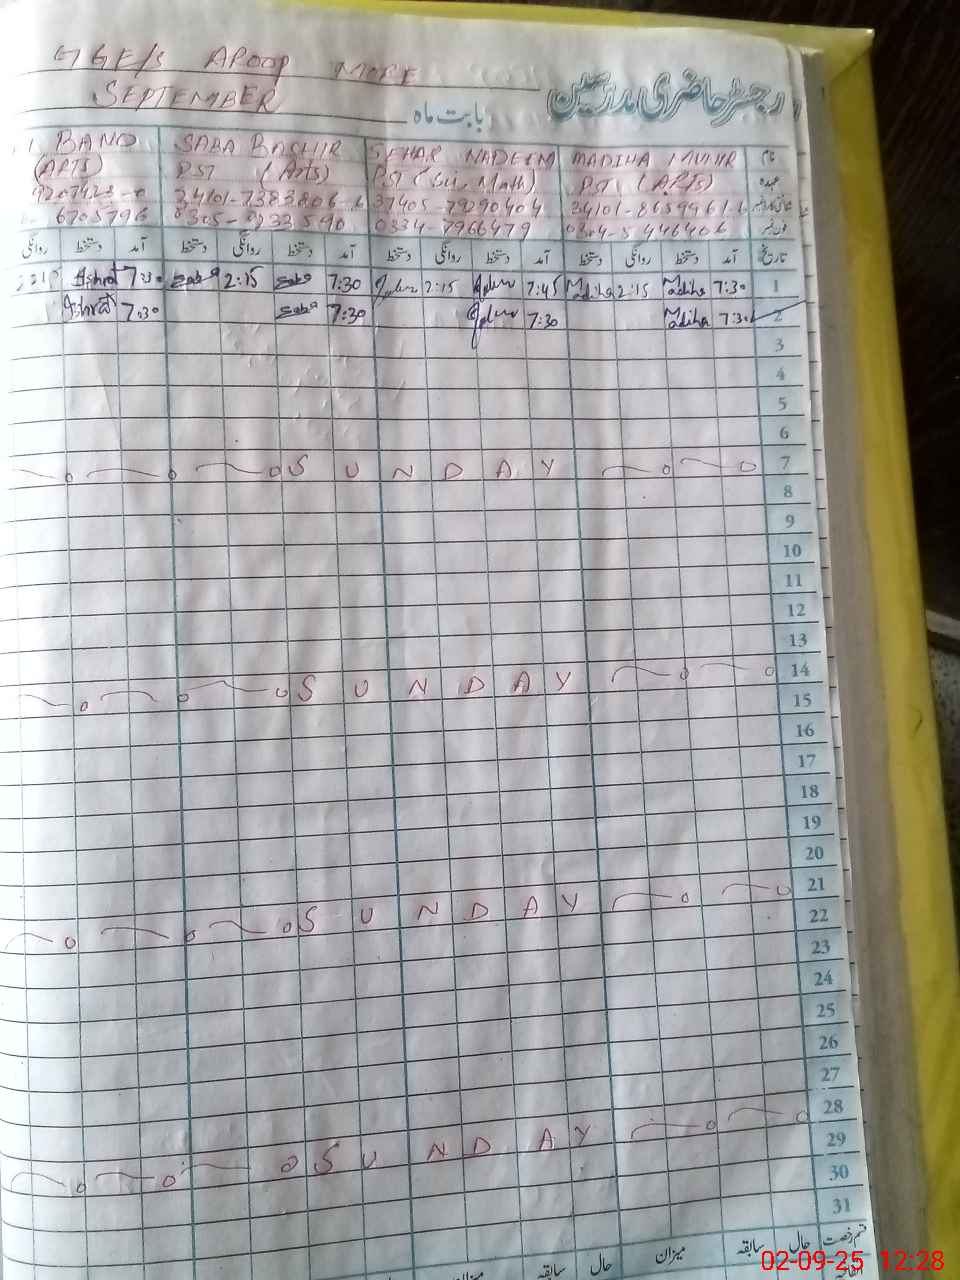 GGE/S AROOP MORE
رجسٹر حاضری مدرسین
SEPTEMBER بابت ماہ
BANO SABA BASHIR SEHAR NADEEM MADIHA نام
(ARTS) PST (Arts) PST (Sci, Math) PST (ARTS) عہدہ
34101-7383806-6 37405-7929040-4 34101-8659961-6
6705796 0305-9233590 0334-7966479 0304-5446406
روانگی دستخط آمد دستخط روانگی دستخط آمد دستخط روانگی دستخط آمد دستخط روانگی دستخط آمد تاریخ
Ishrat 7:30 Saba 2:15 Saba 7:30 2:15 7:45 Madiha 2:15 Madiha 7:30 1
Ishrat 7:30 Saba 7:30 7:30 Madiha 7:30 2
3
4
5
6
SUNDAY 7
8
9
10
11
12
13
SUNDAY 14
15
16
17
18
19
20
SUNDAY 21
22
23
24
25
26
27
SUNDAY 28
29
30
31
سابقہ حال میزان سابقہ حال قسم رخصت
میزان اتفاقیہ
02-09-25 12:28